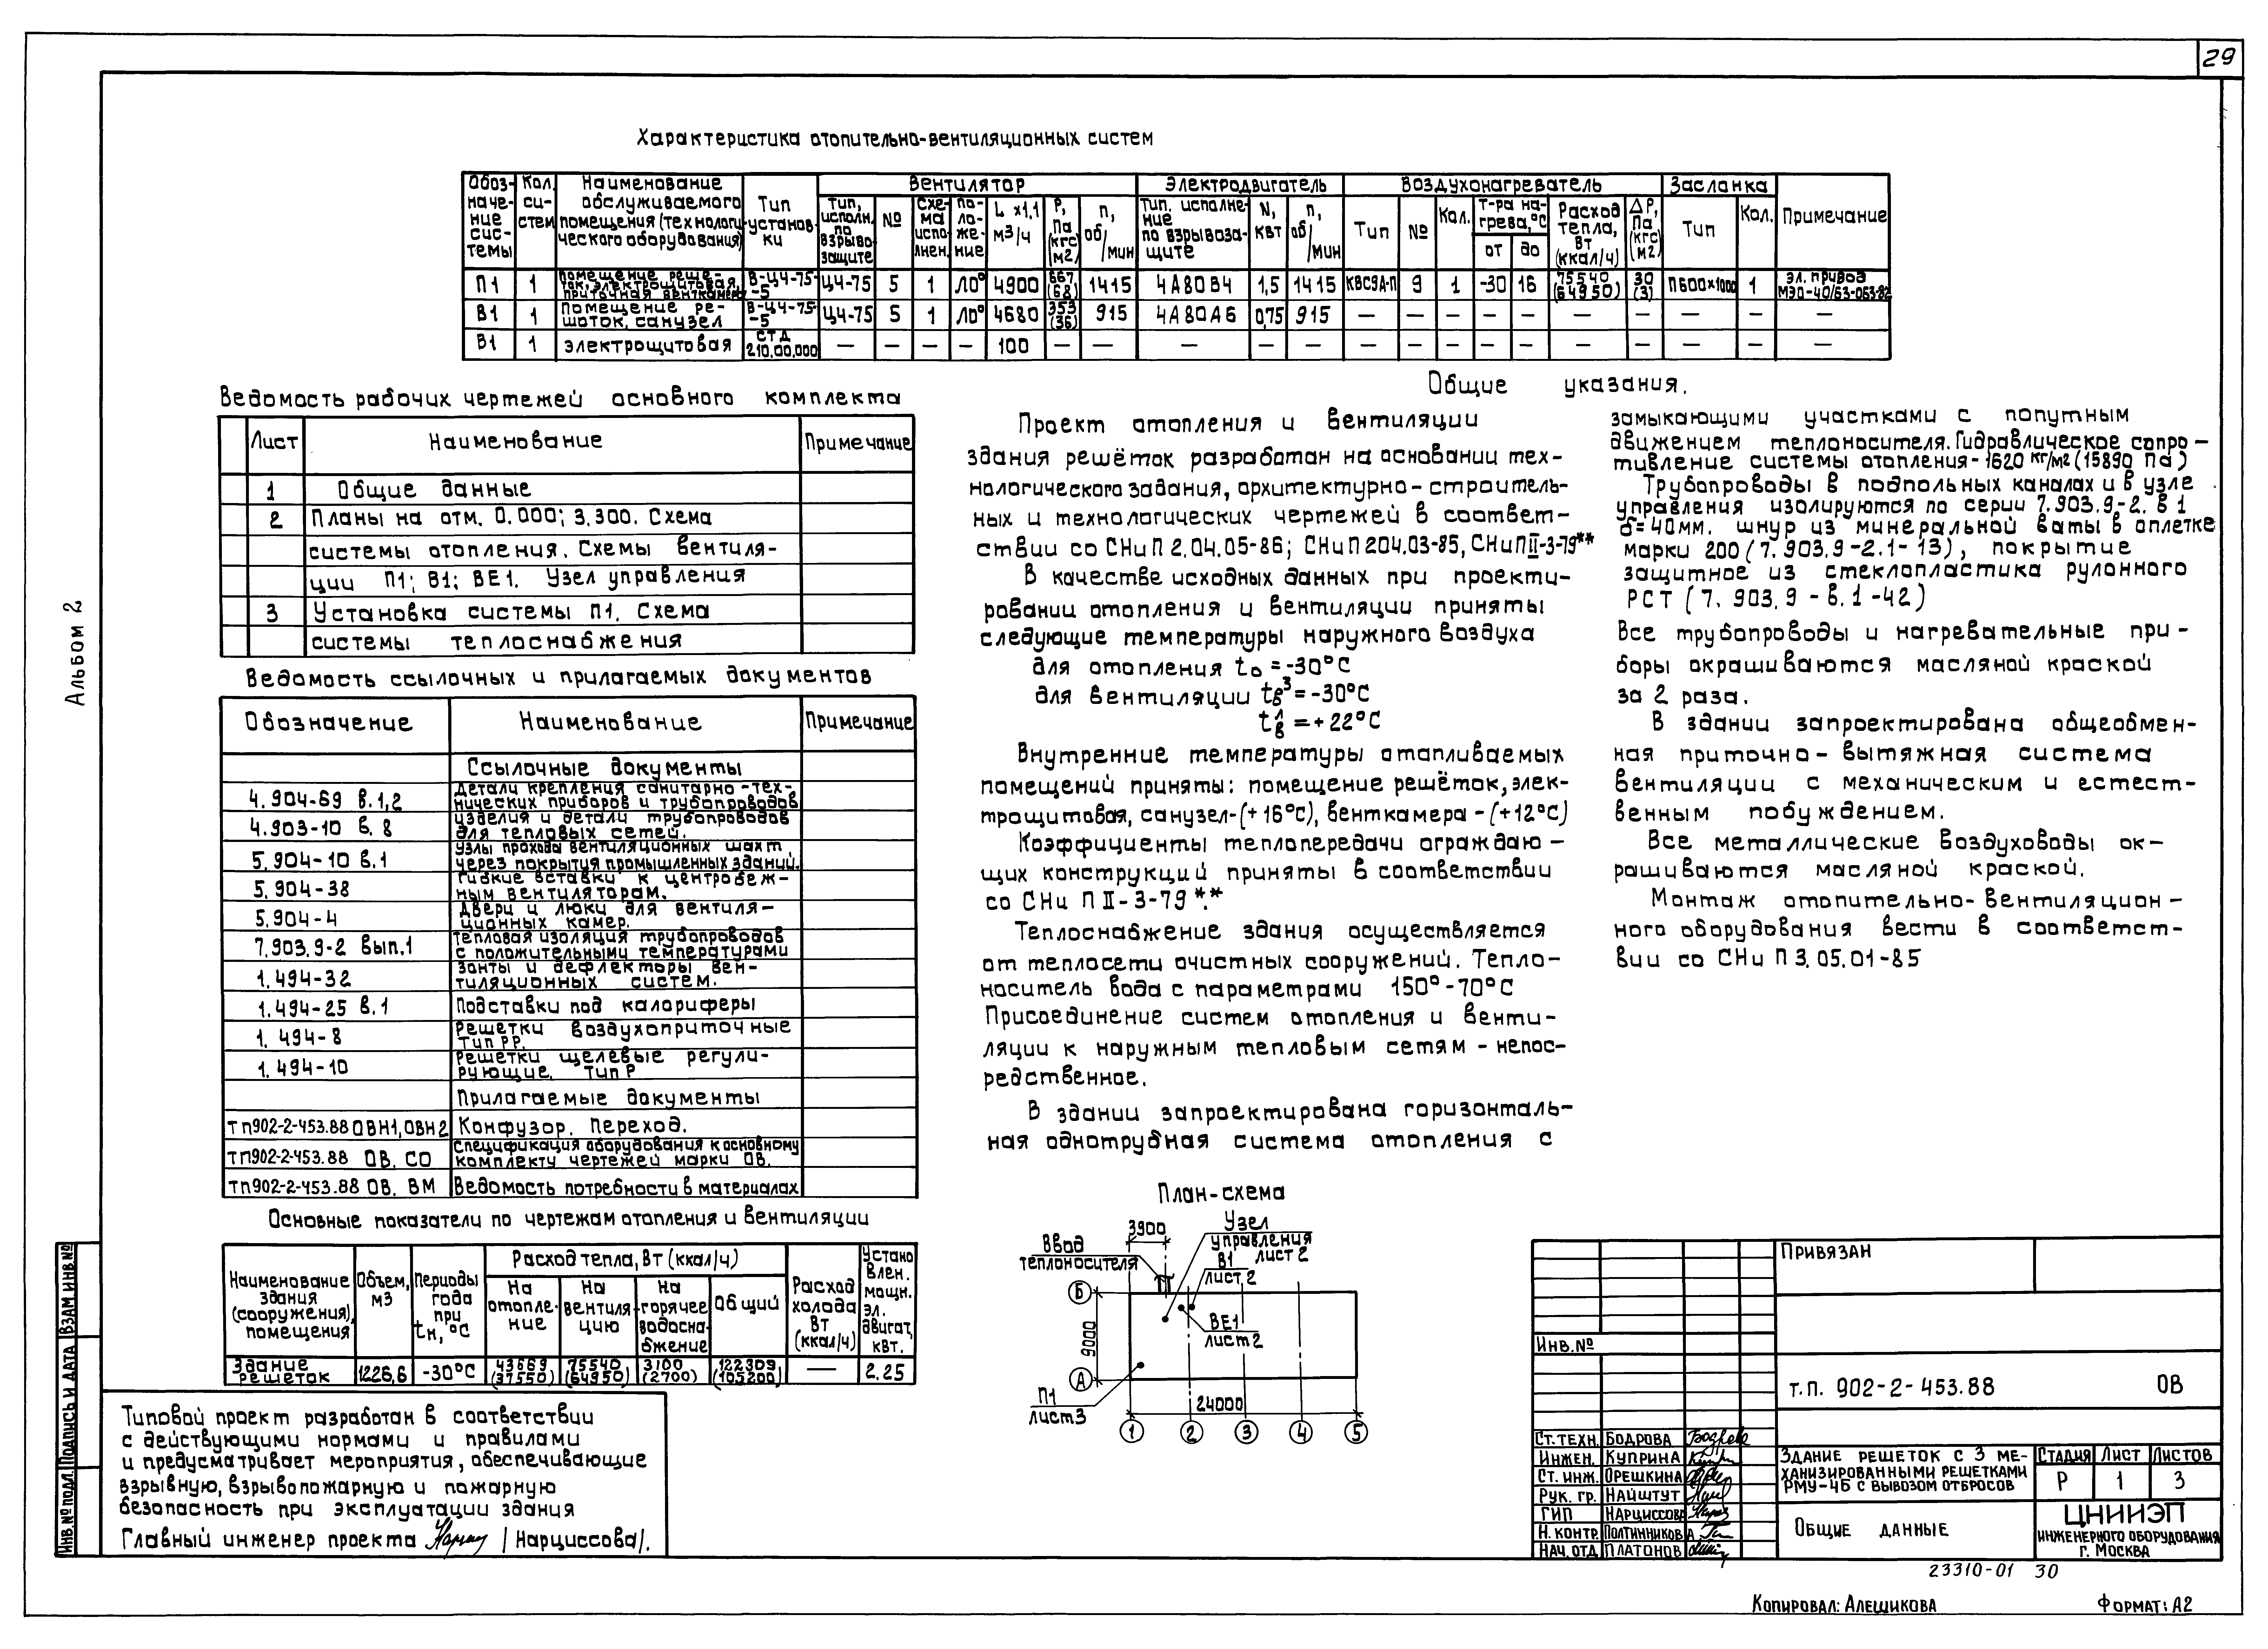 29
Альбом 2
Характеристика отопительно-вентиляционных систем
Обозначение системы | Кол. систем | Наименование обслуживаемого помещения (технологического оборудования) | Тип установки | Вентилятор | Электродвигатель | Воздухонагреватель | Заслонка | Примечание
Тип, исполн. по взрывозащите | № | Схема исполнен. | Положение | L x1,1 м3/ч | Р, Па (кгс/м2) | п, об/мин | Тип. исполнение по взрывозащите | N, квт | п, об/мин | Тип | № | Кол. | Т-ра нагрева, °С от до | Расход тепла, Вт (ккал/ч) | ΔР, Па (кгс/м2) | Тип | Кол.
П1 | 1 | Помещение решеток, электрощитовая, приточная венткамера | В-Ц4-75-5 | Ц4-75 | 5 | 1 | Л0° | 4900 | 667 (68) | 1415 | 4А80В4 | 1,5 | 1415 | КВС9А-П | 9 | 1 | -30 | 16 | 75540 (64950) | 30 (3) | П600х1000 | 1 | Эл. привод МЭО-40/63-0,63-82
В1 | 1 | Помещение решоток, санузел | В-Ц4-75-5 | Ц4-75 | 5 | 1 | Л0° | 4680 | 353 (36) | 915 | 4А80А6 | 0,75 | 915 | — | — | — | — | — | — | — | — | — | —
В1 | 1 | Электрощитовая | СТД 210.00.000 | — | — | — | — | 100 | — | — | — | — | — | — | — | — | — | — | — | — | — | — | —
Ведомость рабочих чертежей основного комплекта
Лист | Наименование | Примечание
1 | Общие данные
2 | Планы на отм. 0.000; 3.300. Схема
системы отопления. Схемы вентиля-
ции П1; В1; ВЕ1. Узел управления
3 | Установка системы П1. Схема
системы теплоснабжения
Ведомость ссылочных и прилагаемых документов
Обозначение | Наименование | Примечание
Ссылочные документы
4.904-69 в.1,2 | Детали крепления санитарно-тех-
нических приборов и трубопроводов
4.903-10 в. 8 | Изделия и детали трубопроводов
для тепловых сетей.
5.904-10 в.1 | Узлы прохода вентиляционных шахт
через покрытия промышленных зданий.
5.904-38 | Гибкие вставки к центробеж-
ным вентиляторам.
5.904-4 | Двери и люки для вентиля-
ционных камер.
7.903.9-2 вып.1 | Тепловая изоляция трубопроводов
с положительными температурами
1.494-32 | Зонты и дефлекторы вен-
тиляционных систем.
1.494-25 в.1 | Подставки под калориферы
1. 494-8 | Решетки воздухоприточные
Тип РР.
1. 494-10 | Решетки щелевые регули-
рующие. Тип Р
Прилагаемые документы
тп902-2-453.88 ОВН1, ОВН2 | Конфузор. Переход.
тп902-2-453.88 ОВ. СО | Спецификация оборудования к основному
комплекту чертежей марки ОВ.
тп902-2-453.88 ОВ. ВМ | Ведомость потребности в материалах
Основные показатели по чертежам отопления и вентиляции
Наименование здания (сооружения), помещения | Объем, м3 | Периоды года при tн, °С | Расход тепла, Вт (ккал/ч) | Расход холода Вт (ккал/ч) | Устано влен. мощн. эл. двигат, квт.
На отопление | На вентиляцию | На горячее водоснабжение | Общий
Здание решеток | 1226,6 | -30°С | 43669 (37550) | 75540 (64950) | 3100 (2700) | 122309 (105200) | — | 2.25
Типовой проект разработан в соответствии
с действующими нормами и правилами
и предусматривает мероприятия, обеспечивающие
взрывную, взрывопожарную и пожарную
безопасность при эксплуатации здания
Главный инженер проекта / Нарциссова/.
Общие указания.
Проект отопления и вентиляции
здания решёток разработан на основании тех-
нологического задания, архитектурно-строитель-
ных и технологических чертежей в соответ-
ствии со СНиП 2.04.05-86; СНиП 204.03-85, СНиПII-3-79**
В качестве исходных данных при проекти-
ровании отопления и вентиляции приняты
следующие температуры наружного воздуха
для отопления to = -30°С
для вентиляции tв³ = -30°С
tвᴧ = +22°С
Внутренние температуры отапливаемых
помещений приняты: помещение решёток, элек-
трощитовая, санузел-(+16°С), венткамера-(+12°С)
Коэффициенты теплопередачи ограждаю-
щих конструкций приняты в соответствии
со СНиП II-3-79**.
Теплоснабжение здания осуществляется
от теплосети очистных сооружений. Тепло-
носитель вода с параметрами 150°-70°С
Присоединение систем отопления и венти-
ляции к наружным тепловым сетям - непос-
редственное.
В здании запроектирована горизонталь-
ная однотрубная система отопления с
замыкающими участками с попутным
движением теплоносителя. Гидравлическое сопро-
тивление системы отопления-1620 кг/м2 (15890 Па)
Трубопроводы в подпольных каналах и в узле
управления изолируются по серии 7.903.9-2. в 1
δ=40мм. шнур из минеральной ваты в оплетке
марки 200 (7.903.9-2.1-13), покрытие
защитное из стеклопластика рулонного
РСТ (7. 903.9-в.1-42)
Все трубопроводы и нагревательные при-
боры окрашиваются масляной краской
за 2 раза.
В здании запроектирована общеобмен-
ная приточно-вытяжная система
вентиляции с механическим и естест-
венным побуждением.
Все металлические воздуховоды ок-
рашиваются масляной краской.
Монтаж отопительно-вентиляцион-
ного оборудования вести в соответст-
вии со СНиП 3.05.01-85
План-схема
3900
Узел
управления
лист 2
Ввод
теплоносителя
В1
лист 2
ВЕ1
лист2
П1
лист3
Б
А
9000
24000
1 2 3 4 5
Привязан
Инв.№
т.п. 902-2-453.88 ОВ
Ст.техн. Бодрова
Инжен. Куприна
Ст. инж. Орешкина
Рук. гр. Найштут
ГИП Нарциссова
Н. контр. Полтинникова
Нач. отд Платонов
Здание решеток с 3 ме-
ханизированными решетками
РМУ-4Б с вывозом отбросов
Стадия Лист Листов
Р 1 3
Общие данные
ЦНИИЭП
инженерного оборудования
г. Москва
Инв.№ подл. Подпись и дата Взам.инв№
23310-01 30
Копировал: Алешикова
Формат: А2